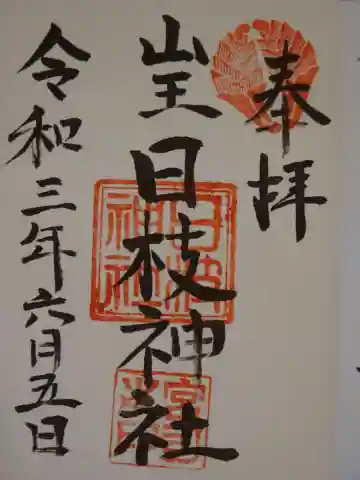 奉拝
山王
日枝神社
令和三年六月五日
日枝神社